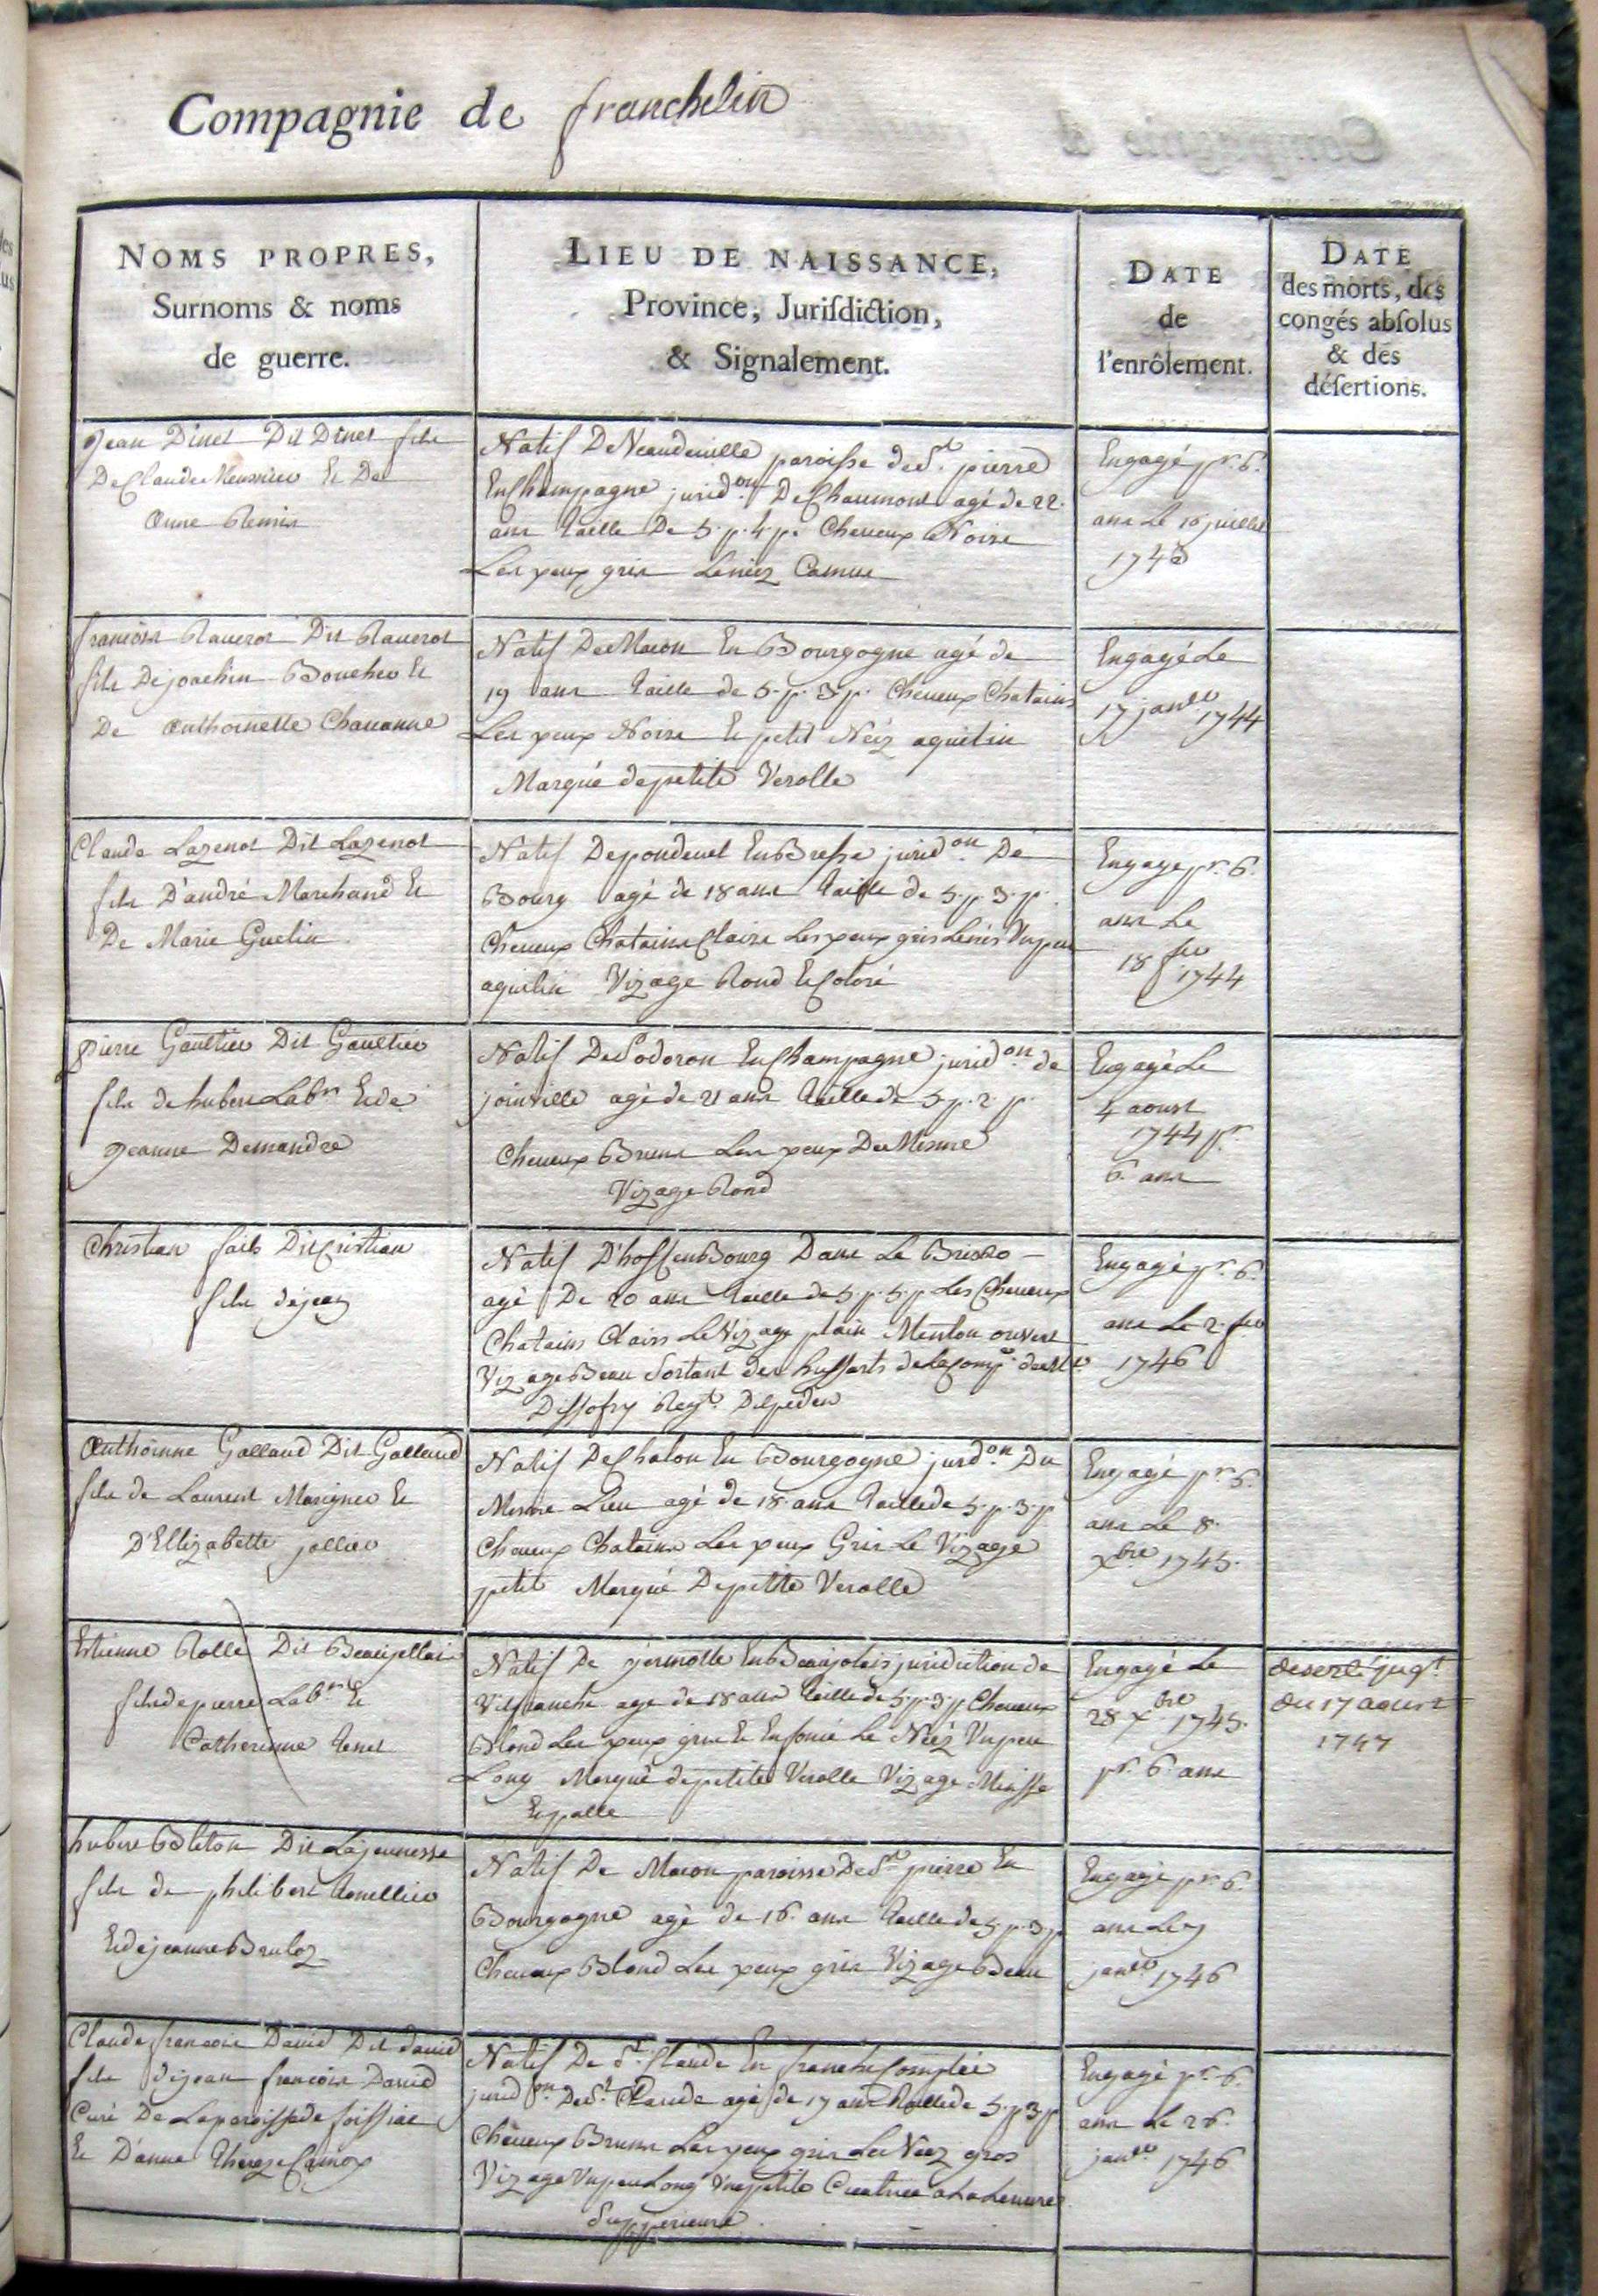 Compagnie de franchelin
NOMS PROPRES,
Surnoms & noms
de guerre.
LIEU DE NAISSANCE,
Province, Jurisdiction,
& Signalement.
DATE
de
l'enrôlement.
DATE
des morts, des
congés absolus
& des
désertions.
Jean Dinet Dit Dinet fils
De Claude Meusnier Et De
Anne Remin
Natif De Neaudeuille paroisse de St. pierre
En Champagne juridon. De Chaumont agé de 22.
ans taille De 5. p. 4 p. Cheueux Noirs
Les yeux gris Le néz Camus
Engagé pr. 6.
ans Le 10 juillet
francois Raverot Dit Raverot
fils De joachin Boucher Et
De Anthoinette Chavanne
Natif De Macon En Bourgogne agé de
19 ans taille de 5. p. 3. p. Cheueux Chatains
Les yeux Noirs Le petit Néz aquilin
Marqué de petite Verolle
Engagé Le
17 janer 1744
Claude Lazenot Dit Lazenot
fils D'andré Marchand Et
De Marie Guelin
Natif De pondevel En Bresse juridon. De
Bourg agé de 18 ans taille de 5. p. 3. p.
Cheueux Chatains Clairs Les yeux gris Le nés Vn peu
aquilin Vizage Rond Et Coloré
Engagé pr. 6.
ans Le
18 fer 1744
pierre Gaultier Dit Gaultier
fils de hubert Labr. Et de
Jeanne Demandre
Natif De Sodoron En Champagne juridon. de
joinville agé de 21 ans taille de 5. p. 2. p.
Cheueux Bruns Les yeux De Mesme
Vizage Rond
Engagé Le
4 aoust
1744 pr.
6. ans
Christian fails Dit Cristian
fils de jean
Natif D'hoffenBourg Dans Le
agé De 20 ans taille de 5. p. 5. p Les Cheueux
Chatains Clairs Le Vizage plain Menton ouvert
Vizage Beau Sortant des hussarts de la Comp.
Regt.
Engagé pr. 6.
ans Le 2. fer
1746
Anthoinne Golland Dit Golland
fils de Laurent Marignier Et
D'Ellizabette jollier
Natif De Chalon En Bourgogne jurdon. Du
Mesme Lieu agé de 18. ans taille de 5. p. 3. p
Cheueux Chatains Les yeux Gris Le Vizage
petit Marqué De petite Verolle
Engagé pr. 6.
ans Le 8.
xbre 1745.
Estienne Rolle Dit Beaujellois
fils de pierre Labr. Et
Catherinne tenet
Natif De jermolle En Beaujolois juridiction de
Vilfranche agé de 18 ans taille de 5. p. 3. p Cheueux
Blond Les yeux gris Et Enfoncé Le Néz Vn peu
Long Marqué de petite Verolle Vizage Minsse
Et palle
Engagé Le
28 xbre 1745.
pr. 6. ans
deserté jugt.
du 17 aoust
1747
hubert Bleton Dit Lajeunesse
fils de philibert tonellier
Et de jeanne Bruloz
Natif De Macon paroisse De St. pierre En
Bourgogne agé de 16. ans taille de 5. p. 3 p
Cheueux Blond Les yeux gris Vizage Beau
Engagé pr. 6.
ans Le 9
janer 1746
Claude francois David Dit David
fils de jean francois David
Curé De La paroisse de soissiat
Et D'anne therese Camox
Natif De St. Claude En franche Comptée
juridon. De St. Claude agé de 17 ans taille de 5. p 3 p
Cheueux Bruns Les yeux gris Le Néz gros
Vizage Vn peu Long Vne petite Cicatrice a La Levure
Supperieure
Engagé pr. 6.
ans Le 26.
janer. 1746